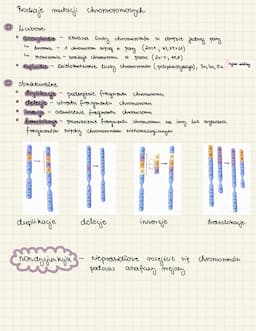 Rodzaje mutacji chromosomowych
① Liczbowe
• aneuploidia - zmiana liczby chromosomów w obrębie jednej pary
↳ trisomia - 1 chromosom więcej w parze (2n+1,
↳ monosomia - brak chromosomu w parze (2n-1,
• euploidia - zwielokrotnienie liczby chromosomów (poliploidyzacja), 3n, 4n,
② strukturalne
• duplikacja - podwojenie fragmentu chromosomu
• delecja - utrata fragmentu chromosomu
• inwersja - odwrócenie fragmentu chromosomu
• translokacja - przeniesienie fragmentu chromosomu na inny lub wymiana
fragmentów między chromosomami niehomologicznymi
duplikacje delecje inwersje translokacje
nondysjunkcja - nieprawidłowe rozejście się chromosomów
podczas anafazy mejozy